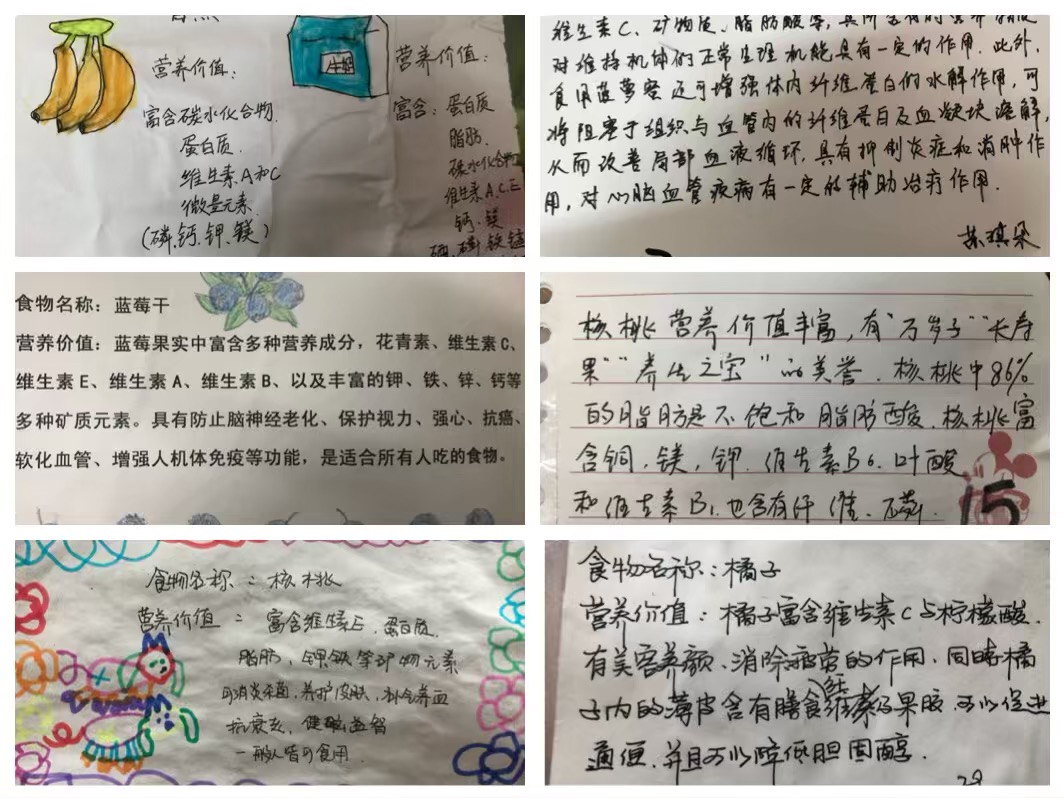 营养价值：
富含碳水化合物.
蛋白质.
维生素A和C
微量元素
(磷、钙、钾、镁)
牛奶
营养价值：
富含：蛋白质
脂肪.
碳水化合物
维生素A.C.E
钙、镁
磷、铁、锰
维生素C、矿物质、脂肪酸等，其所含有的营养
对维持机体的正常生理机能具有一定的作用. 此外,
食用菠萝蜜还可增强体内纤维蛋白的水解作用, 可
将阻塞于组织与血管内的纤维蛋白及血凝块溶解,
从而改善局部血液循环, 具有抑制炎症和消肿作
用, 对心脑血管疾病有一定的辅助治疗作用.
食物名称：蓝莓干
营养价值：蓝莓果实中富含多种营养成分，花青素、维生素C、
维生素E、维生素A、维生素B、以及丰富的钾、铁、锌、钙等
多种矿质元素。具有防止脑神经老化、保护视力、强心、抗癌、
软化血管、增强人机体免疫等功能，是适合所有人吃的食物。
核桃营养价值丰富, 有"万岁子""长寿
果""养生之宝"的美誉. 核桃中86%
的脂肪是不饱和脂肪酸. 核桃富
含铜, 镁, 钾. 维生素B6. 叶酸
和维生素B1. 也含有纤维、磷.
15
食物名称：核桃
营养价值：富含维生素E、蛋白质.
脂肪、钾铁等矿物元素
可消炎杀菌, 养护皮肤, 补气养血
抗衰老, 健脑益智
一般人皆可食用
食物名称：橘子
营养价值：橘子富含维生素C与柠檬酸.
有美容养颜、消除疲劳的作用. 同时橘
子内的薄皮含有膳食纤维及果胶. 可以促进
通便. 并且可以降低胆固醇.